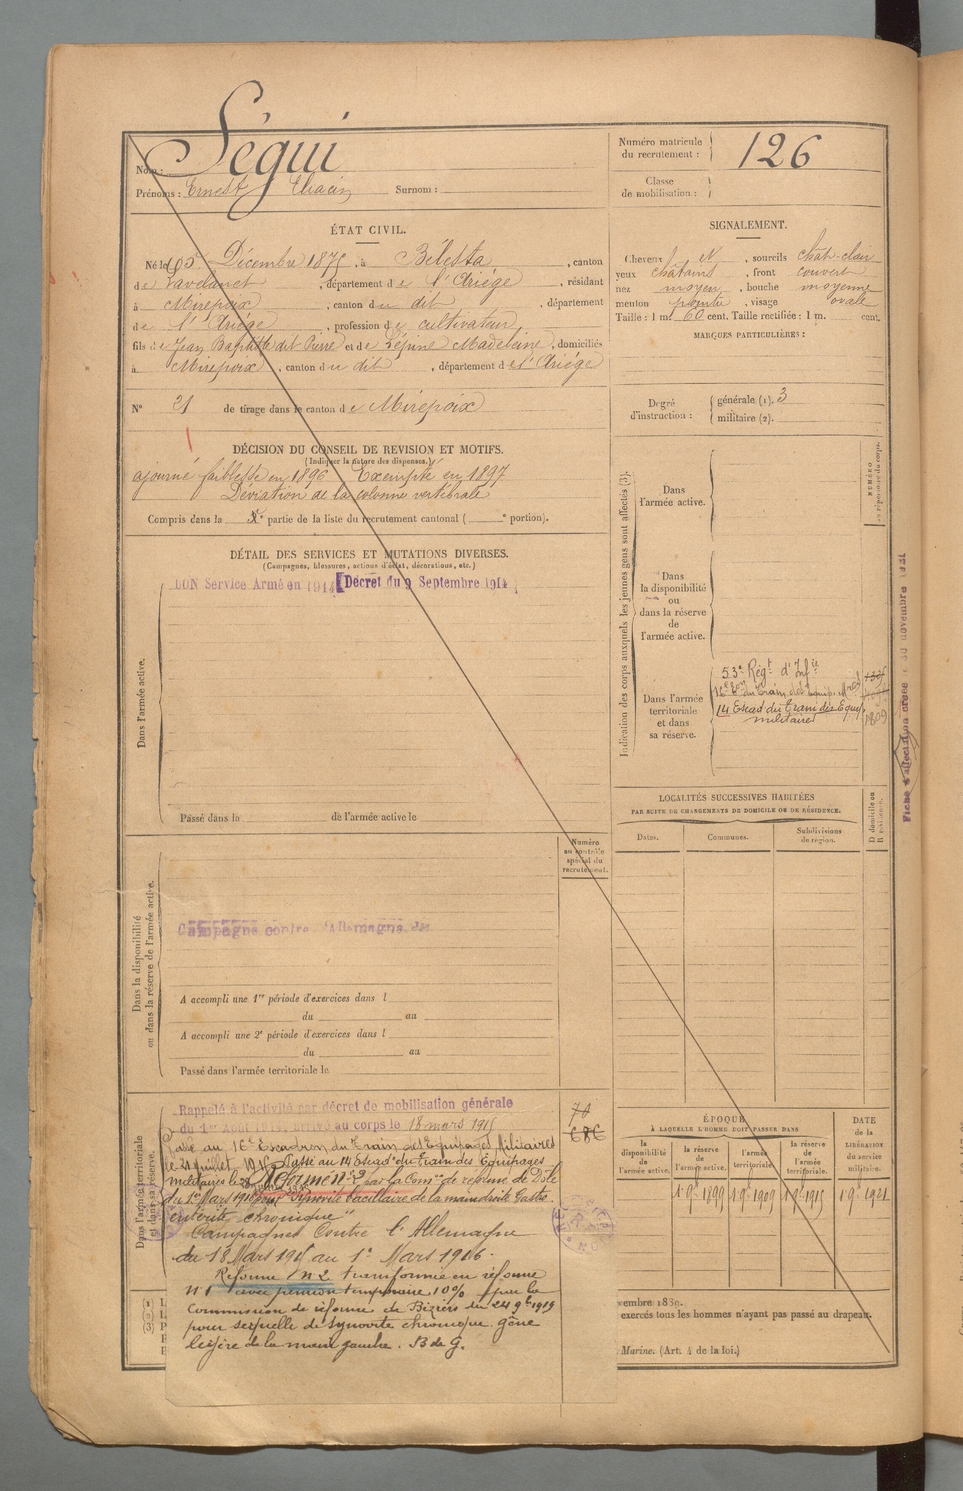 Nom : Ségui
Prénoms : Ernest Surnom :
Numéro matricule du recrutement : 126
Classe de mobilisation :
ÉTAT CIVIL.
Né le 5 Décembre 1875, à Bélesta, canton
de Lavelanet, département de l'Ariège, résidant
à Mirepoix, canton du dit, département
de l'Ariège, profession de cultivateur,
fils de Jean Baptiste dit Pierre et de Madeleine, domiciliés
à Mirepoix, canton du dit, département de l'Ariége
N° 21 de tirage dans le canton de Mirepoix
SIGNALEMENT.
Cheveux et N, sourcils chât-clair
yeux châtains, front couvert
nez moyen, bouche moyenne
menton pointu, visage ovale
Taille : 1 m. 60 cent. Taille rectifiée : 1 m. cent.
MARQUES PARTICULIÈRES :
Degré d'instruction : générale (1). 3
militaire (2).
DÉCISION DU CONSEIL DE REVISION ET MOTIFS.
(Indiquer la nature des dispenses.)
ajourné faiblesse en 1896 Exempté en 1897
Déviation de la colonne vertébrale
Compris dans la e partie de la liste du recrutement cantonal ( e portion).
DÉTAIL DES SERVICES ET MUTATIONS DIVERSES.
(Campagnes, blessures, actions d'éclat, décorations, etc.)
BON Service Armé en 1914 [Décret du 9 Septembre 1914
Dans l'armée active.
Passé dans la de l'armée active le
Numéro au contrôle spécial du recrutement.
Dans la disponibilité ou dans la réserve de l'armée active.
Campagne contre l'Allemagne du
A accompli une 1re période d'exercices dans l
du au
A accompli une 2e période d'exercices dans l
du au
Passé dans l'armée territoriale le
Dans l'armée territoriale et dans sa réserve.
Rappelé à l'activité par décret de mobilisation générale
du 1er Août 1914, arrivé au corps le 18 mars 1915
Passé au 16e Escadron du Train des Equipages Militaires
le 21 juillet 1915 Passé au 14 Escad on du Train des Equipages
militaires le
Réformé n°2 par la Comon de réforme de Dôle
du 1er Mars 1916 pour "Synovite bacillaire de la main droite Gastro
entérite chronique"
Campagnes Contre l'Allemagne
du 18 Mars 1915 au 1er Mars 1916.
Réforme n°2 transformée en réforme
n°1 avec pension temporaire 10% par la
Commission de réforme de Béziers du 24 9bre 1919
pour séquelle de synovite chronique. gêne
légère de la main gauche. B de G.
70
686
Indication des corps auxquels les jeunes gens sont affectés (3).
NUMÉRO au répertoire du corps.
Dans l'armée active.
Dans la disponibilité ou dans la réserve de l'armée active.
Dans l'armée territoriale et dans sa réserve.
53e Régt d'Infie
16e Eon du Train des Equip. Mres
14 Escad du Train des Equip
militaires
1809
LOCALITÉS SUCCESSIVES HABITÉES
PAR SUITE DE CHANGEMENTS DE DOMICILE OU DE RÉSIDENCE.
Dates. Communes. Subdivisions de région. D domicile ou R résidence.
ÉPOQUE
À LAQUELLE L'HOMME DOIT PASSER DANS
la disponibilité de l'armée active.
la réserve de l'armée active.
l'armée territoriale.
la réserve de l'armée territoriale.
DATE de la LIBÉRATION du service militaire.
1.9bre 1899 1.9bre 1909 1.9bre 1915 1.9bre 1921
vembre 18
exercés tous les hommes n'ayant pas passé au drapeau.
Marine. (Art. 4 de la loi.)